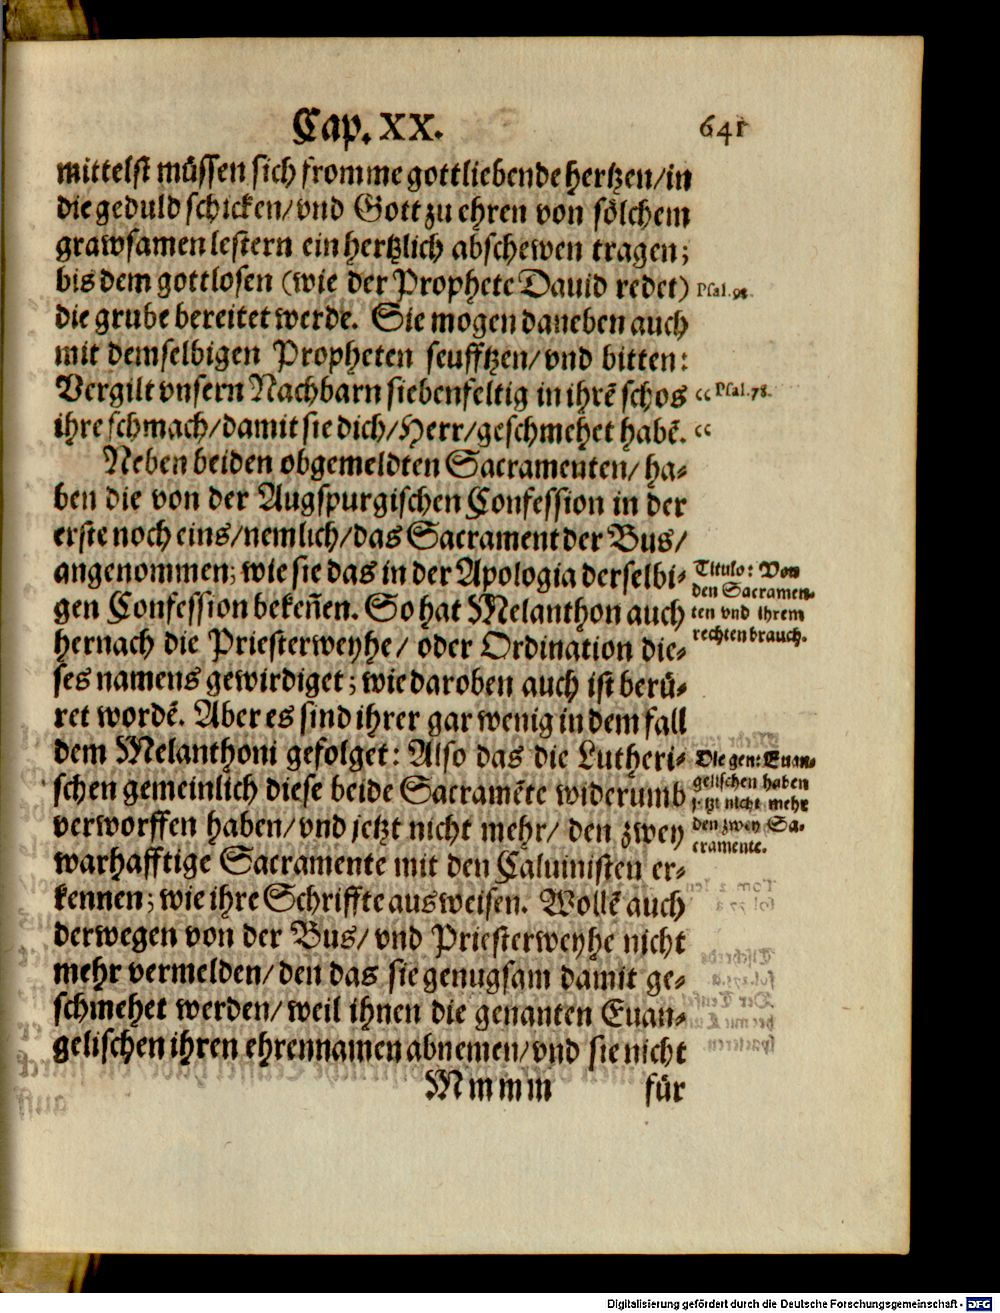 Cap. XX. 641
mittelst müssen sich fromme gottliebende hertzen/ in
die geduld schicken/ vnd Gott zu ehren von sölchem
grawsamen lestern ein hertzlich abschewen tragen;
bis dem gottlosen (wie der Prophete Dauid redet)
Psal. 94.
die grube bereitet werde. Sie mogen daneben auch
mit demselbigen Propheten seufftzen/ vnd bitten:
Vergilt vnsern Nachbarn siebenfeltig in ihrē schos
“ Psal. 78.
ihre schmach/ damit sie dich/ Herr/ geschmehet habē.
“
Neben beiden obgemeldten Sacramenten/ ha-
ben die von der Augspurgischen Confession in der
erste noch eins/ nemlich/ das Sacrament der Bus/
angenommen; wie sie das in der Apologia derselbi-
gen Confession bekeñen. So hat Melanthon auch
hernach die Priesterweyhe/ oder Ordination die-
ses namens gewirdiget; wie daroben auch ist berü-
ret wordē. Aber es sind ihrer gar wenig in dem fall
Titulo: Von
den Sacramen-
ten vnd ihrem
rechten brauch.
dem Melanthoni gefolget: Also das die Lutheri-
schen gemeinlich diese beide Sacramēte widerumb
verworffen haben/ vnd jetzt nicht mehr/ den zwey
warhafftige Sacramente mit den Caluinisten er-
kennen; wie ihre Schriffte ausweisen. Wollē auch
Die gen: Euan-
gelischen haben
jetzt nicht mehr
den zwey Sa-
cramente.
derwegen von der Bus/ vnd Priesterweyhe nicht
mehr vermelden/ den das sie genugsam damit ge-
schmehet werden/ weil ihnen die genanten Euan-
gelischen ihren ehrennamen abnemen/ vnd sie nicht
Mmmm für
Digitalisierung gefördert durch die Deutsche Forschungsgemeinschaft - DFG